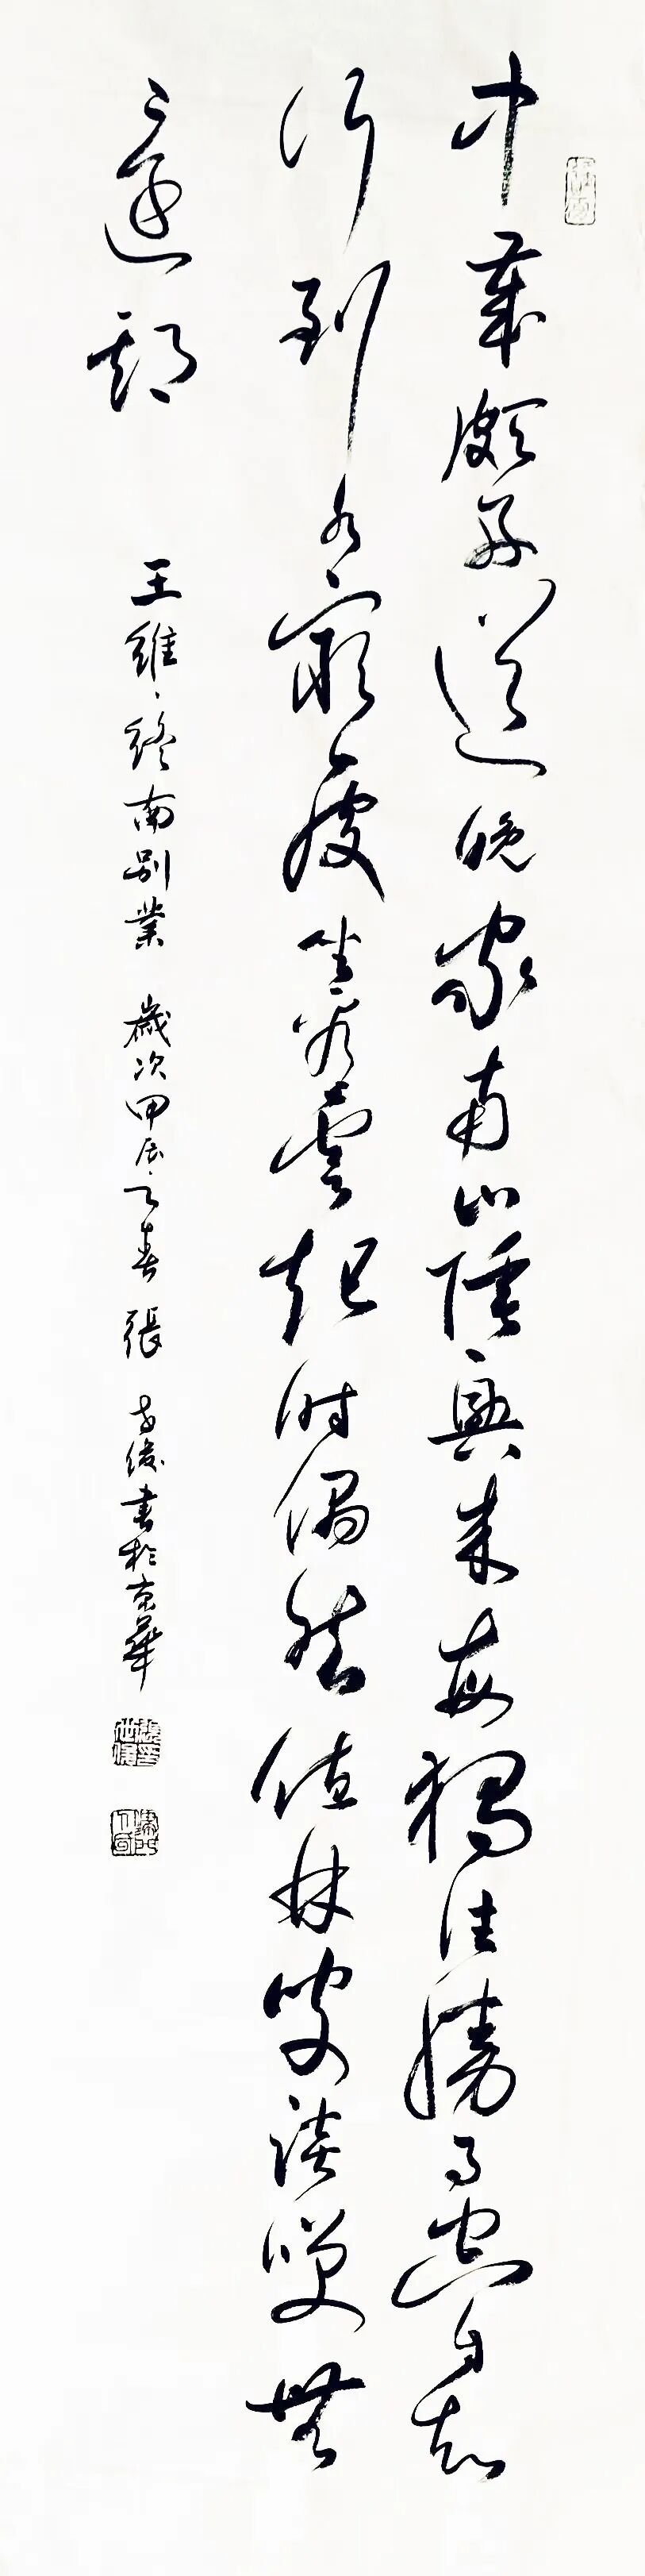 中歲頗好道晚家南山陲興來每獨往勝事空自知
行到水窮處坐看雲起時偶然值林叟談笑無
還期 王維、終南別業 歲次甲辰之春 張 書於京華